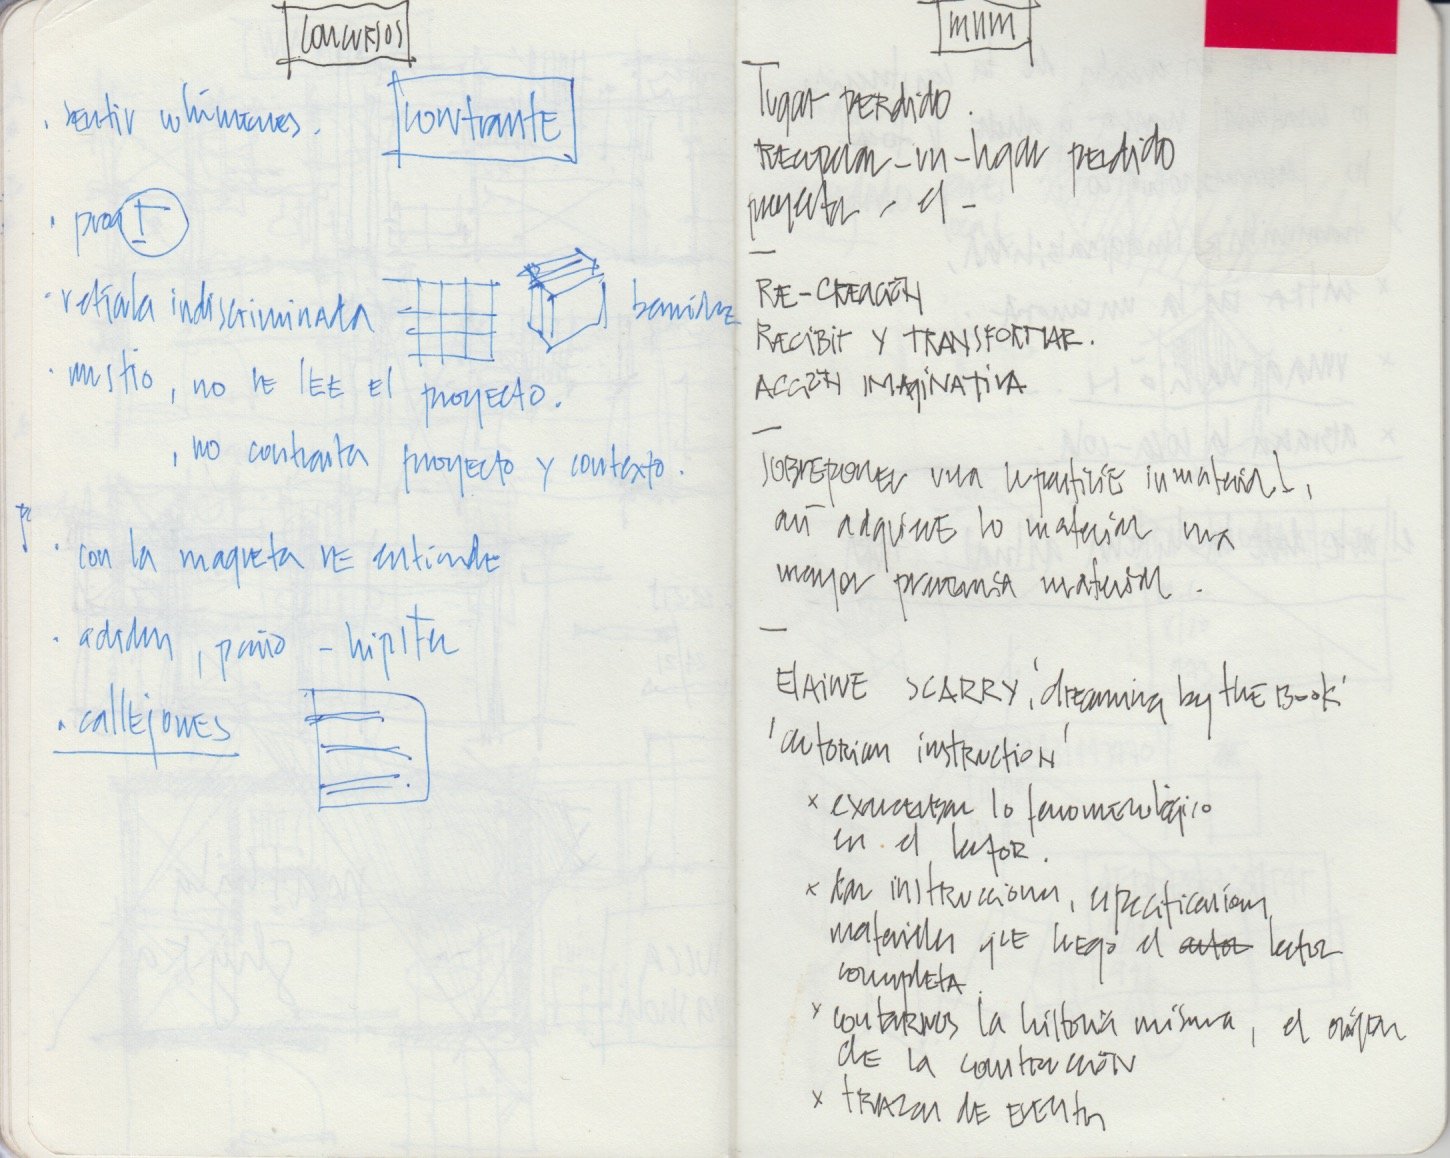 CONCURSOS
. sentir volúmenes.
CONTRASTE
. prog I
. retícula indiscriminada
. mustio, no se lee el proyecto.
, no contrasta proyecto y contexto.
. con la maqueta se entiende
. , paño - hipster
. callejones
MNM
lugar perdido.
Recuperar-un-lugar perdido
proyectar - el -
—
RE-CREACIÓN
RECIBIR Y TRANSFORMAR.
ACCIÓN IMAGINATIVA
—
SOBREPONER una superficie inmaterial,
así adquiere lo material una
mayor presencia material.
—
ELAINE SCARRY, 'dreaming by the Book'
'autorian instruction'
x exacerbar lo fenomenológico
en el lector.
x dar instrucciones, especificaciones
materiales que luego el autor lector
completa.
x contarnos la historia misma, el origen
de la construcción
x trazar de